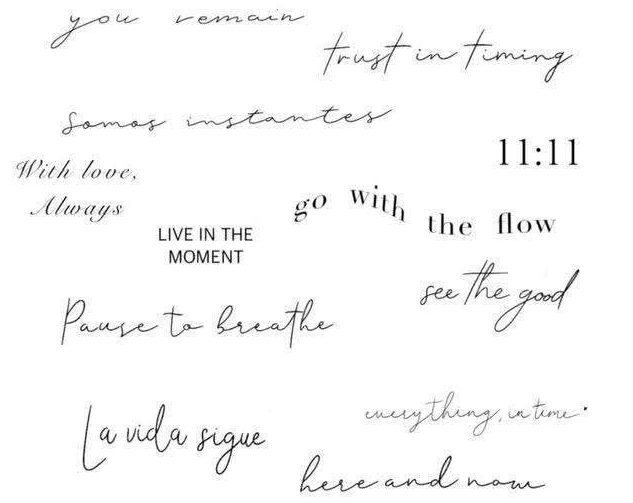 you remain
trust in timing
Somos instantes
11:11
With love,
Always
go with the flow
LIVE IN THE
MOMENT
see the good
Pause to breathe
everything, in time.
La vida sigue
here and now